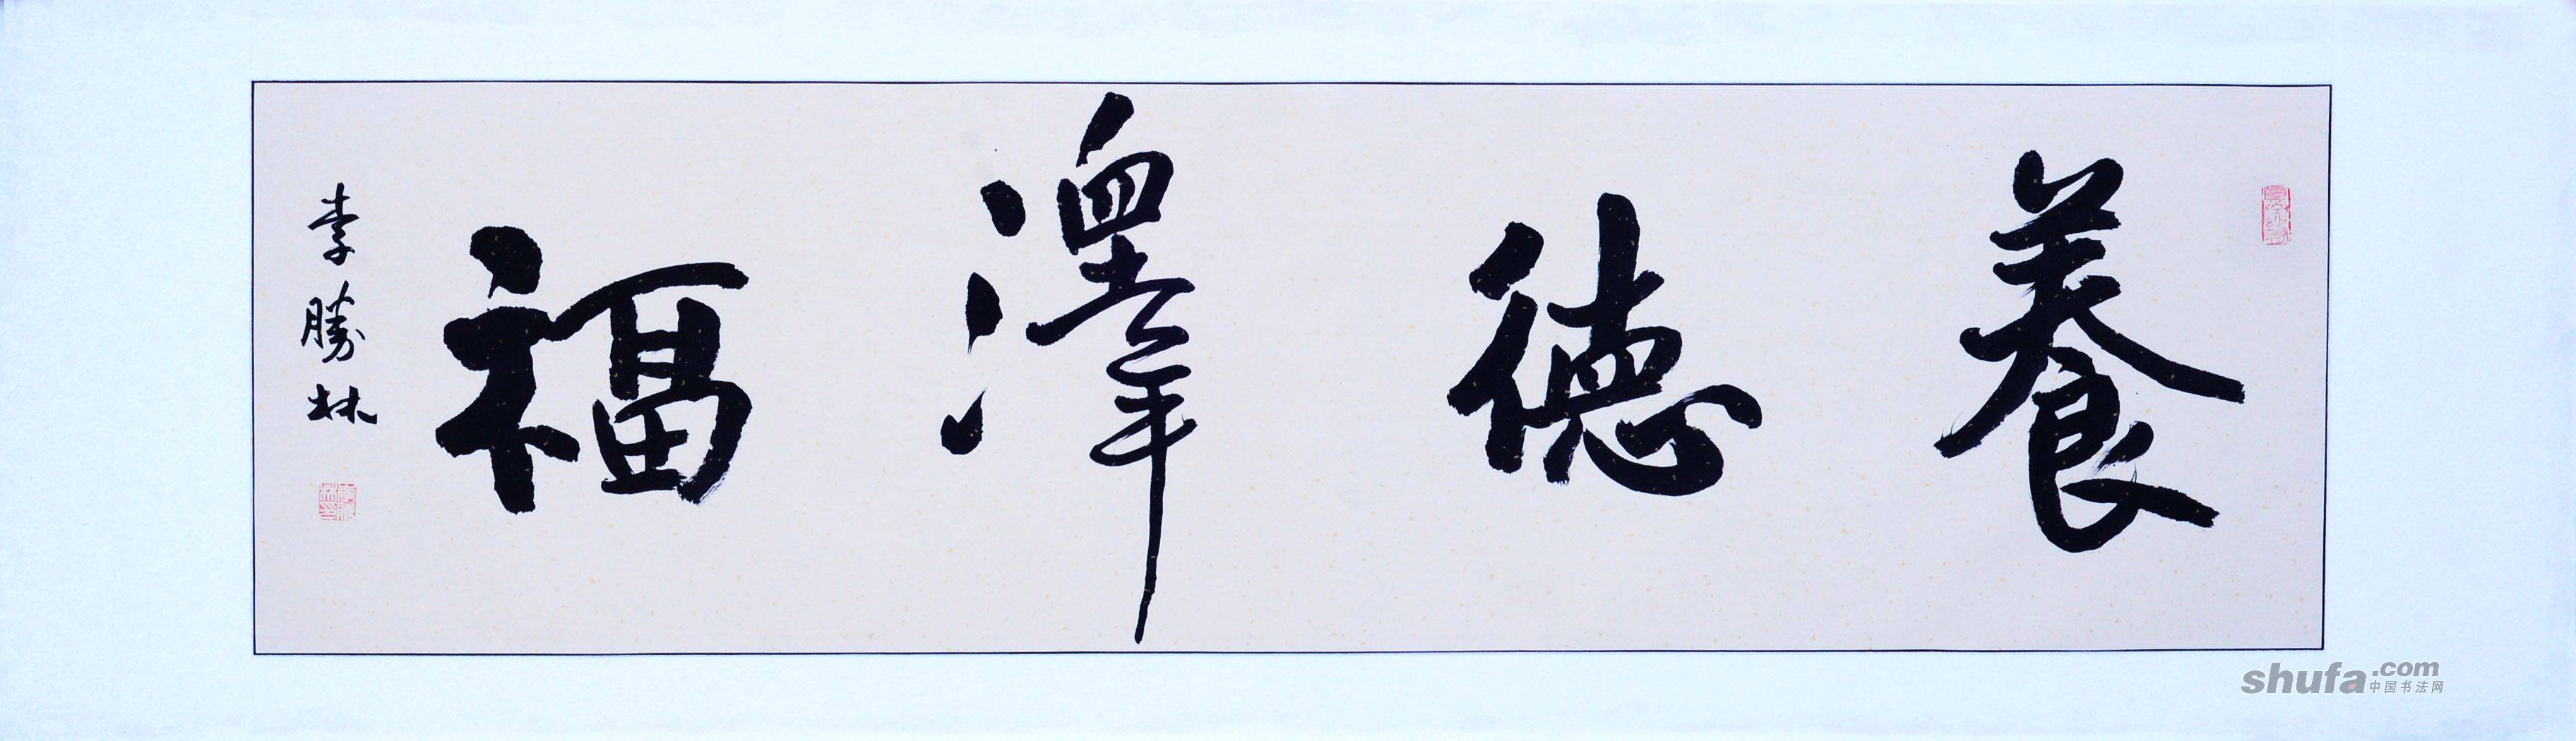 養德澤福
李勝林
shufa.com
中国书法网